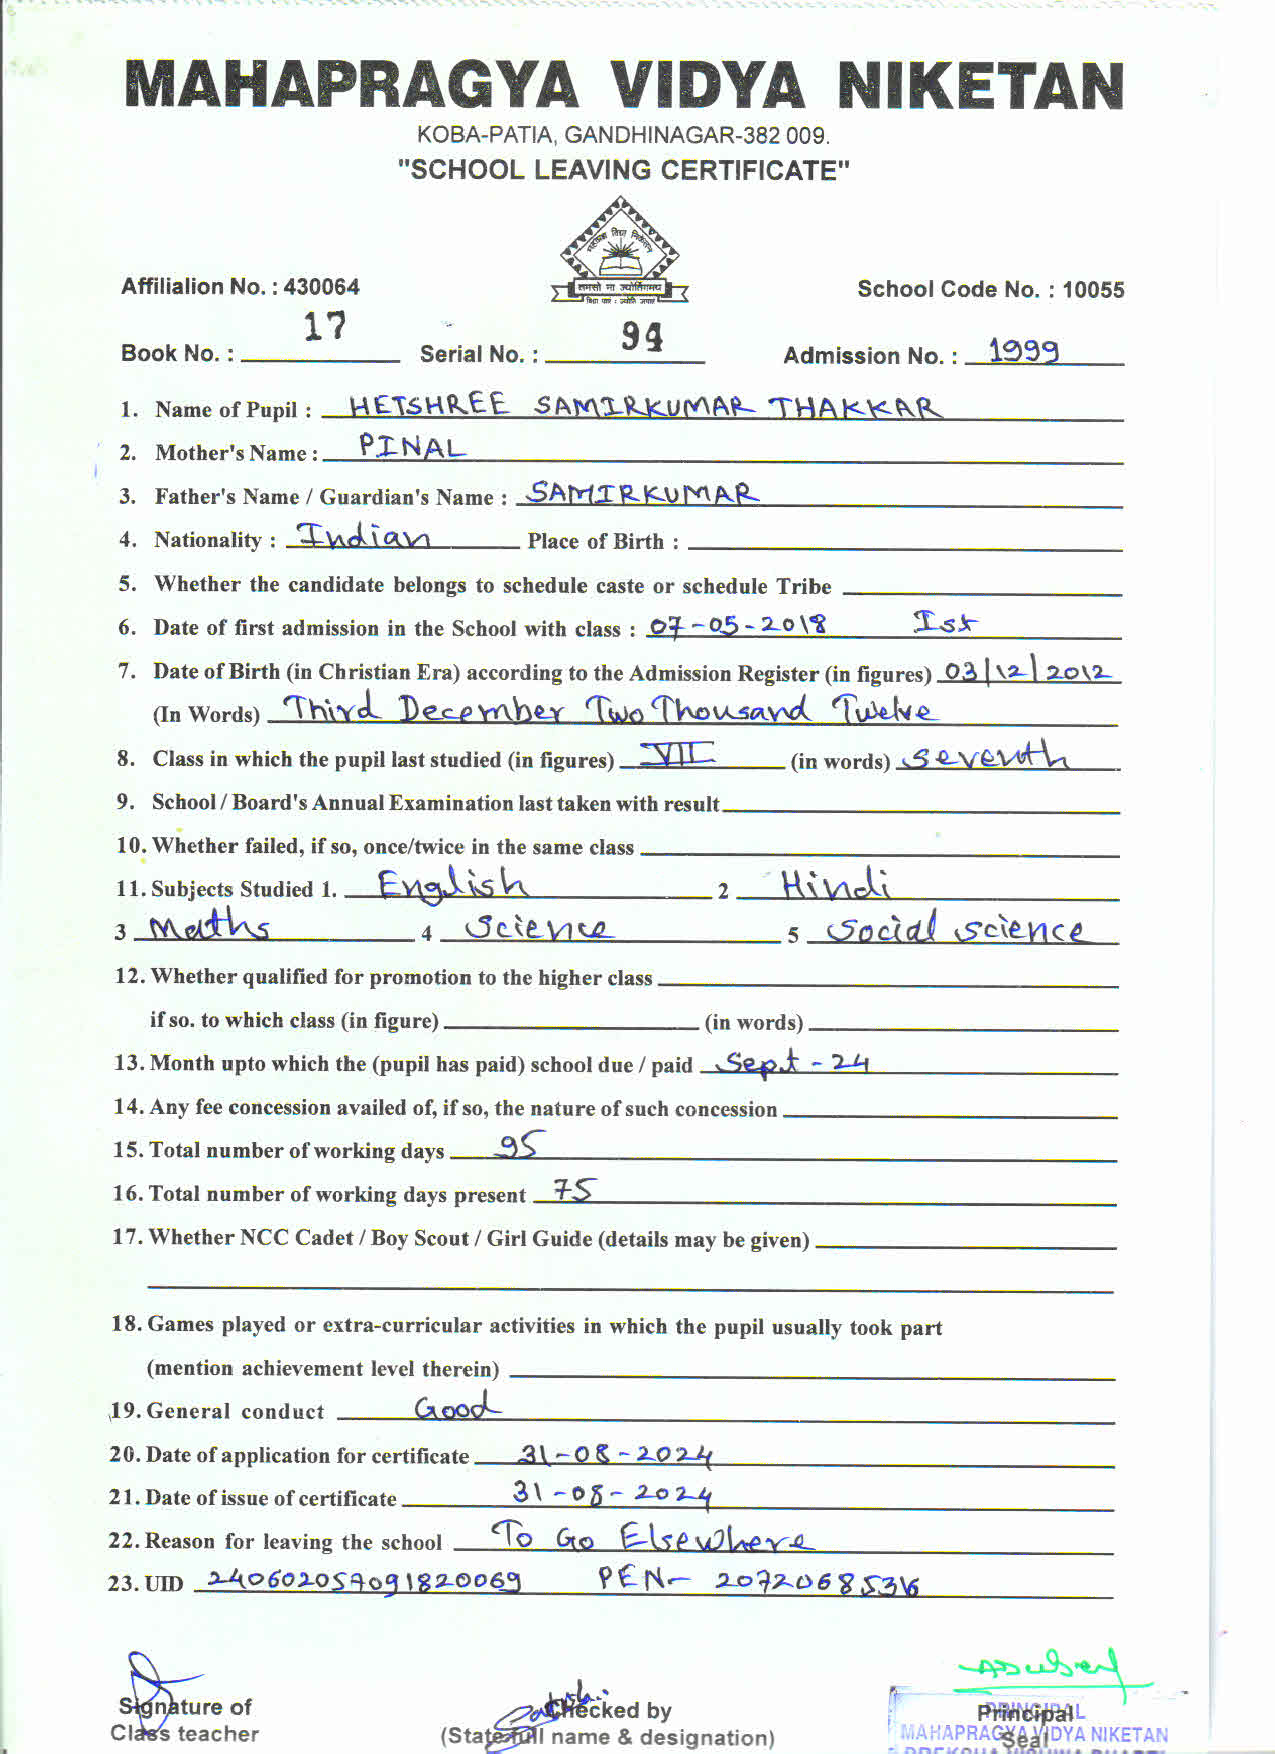 MAHAPRAGYA VIDYA NIKETAN
KOBA-PATIA, GANDHINAGAR-382 009.
"SCHOOL LEAVING CERTIFICATE"
तमसो मा ज्योतिंगमय
Affilialion No. : 430064 School Code No. : 10055
Book No. : 17 Serial No. : 94 Admission No. : 1999
1. Name of Pupil : HETSHREE SAMIRKUMAR THAKKAR
2. Mother's Name : PINAL
3. Father's Name / Guardian's Name : SAMIRKUMAR
4. Nationality : Indian Place of Birth :
5. Whether the candidate belongs to schedule caste or schedule Tribe
6. Date of first admission in the School with class : 07-05-2018 Ist
7. Date of Birth (in Christian Era) according to the Admission Register (in figures) 03/12/2012
(In Words) Third December Two Thousand Twelve
8. Class in which the pupil last studied (in figures) VII (in words) seventh
9. School / Board's Annual Examination last taken with result
10. Whether failed, if so, once/twice in the same class
11. Subjects Studied 1. English 2 Hindi
3 Maths 4 Science 5 Social science
12. Whether qualified for promotion to the higher class
if so. to which class (in figure) (in words)
13. Month upto which the (pupil has paid) school due / paid Sept - 24
14. Any fee concession availed of, if so, the nature of such concession
15. Total number of working days 95
16. Total number of working days present 75
17. Whether NCC Cadet / Boy Scout / Girl Guide (details may be given)
18. Games played or extra-curricular activities in which the pupil usually took part
(mention achievement level therein)
19. General conduct Good
20. Date of application for certificate 31-08-2024
21. Date of issue of certificate 31-08-2024
22. Reason for leaving the school To Go Elsewhere
23. UID 240602057091820069 PEN- 20720685316
Signature of Checked by Principal PRINCIPAL
Class teacher (State full name & designation) Seal MAHAPRAGYA VIDYA NIKETAN